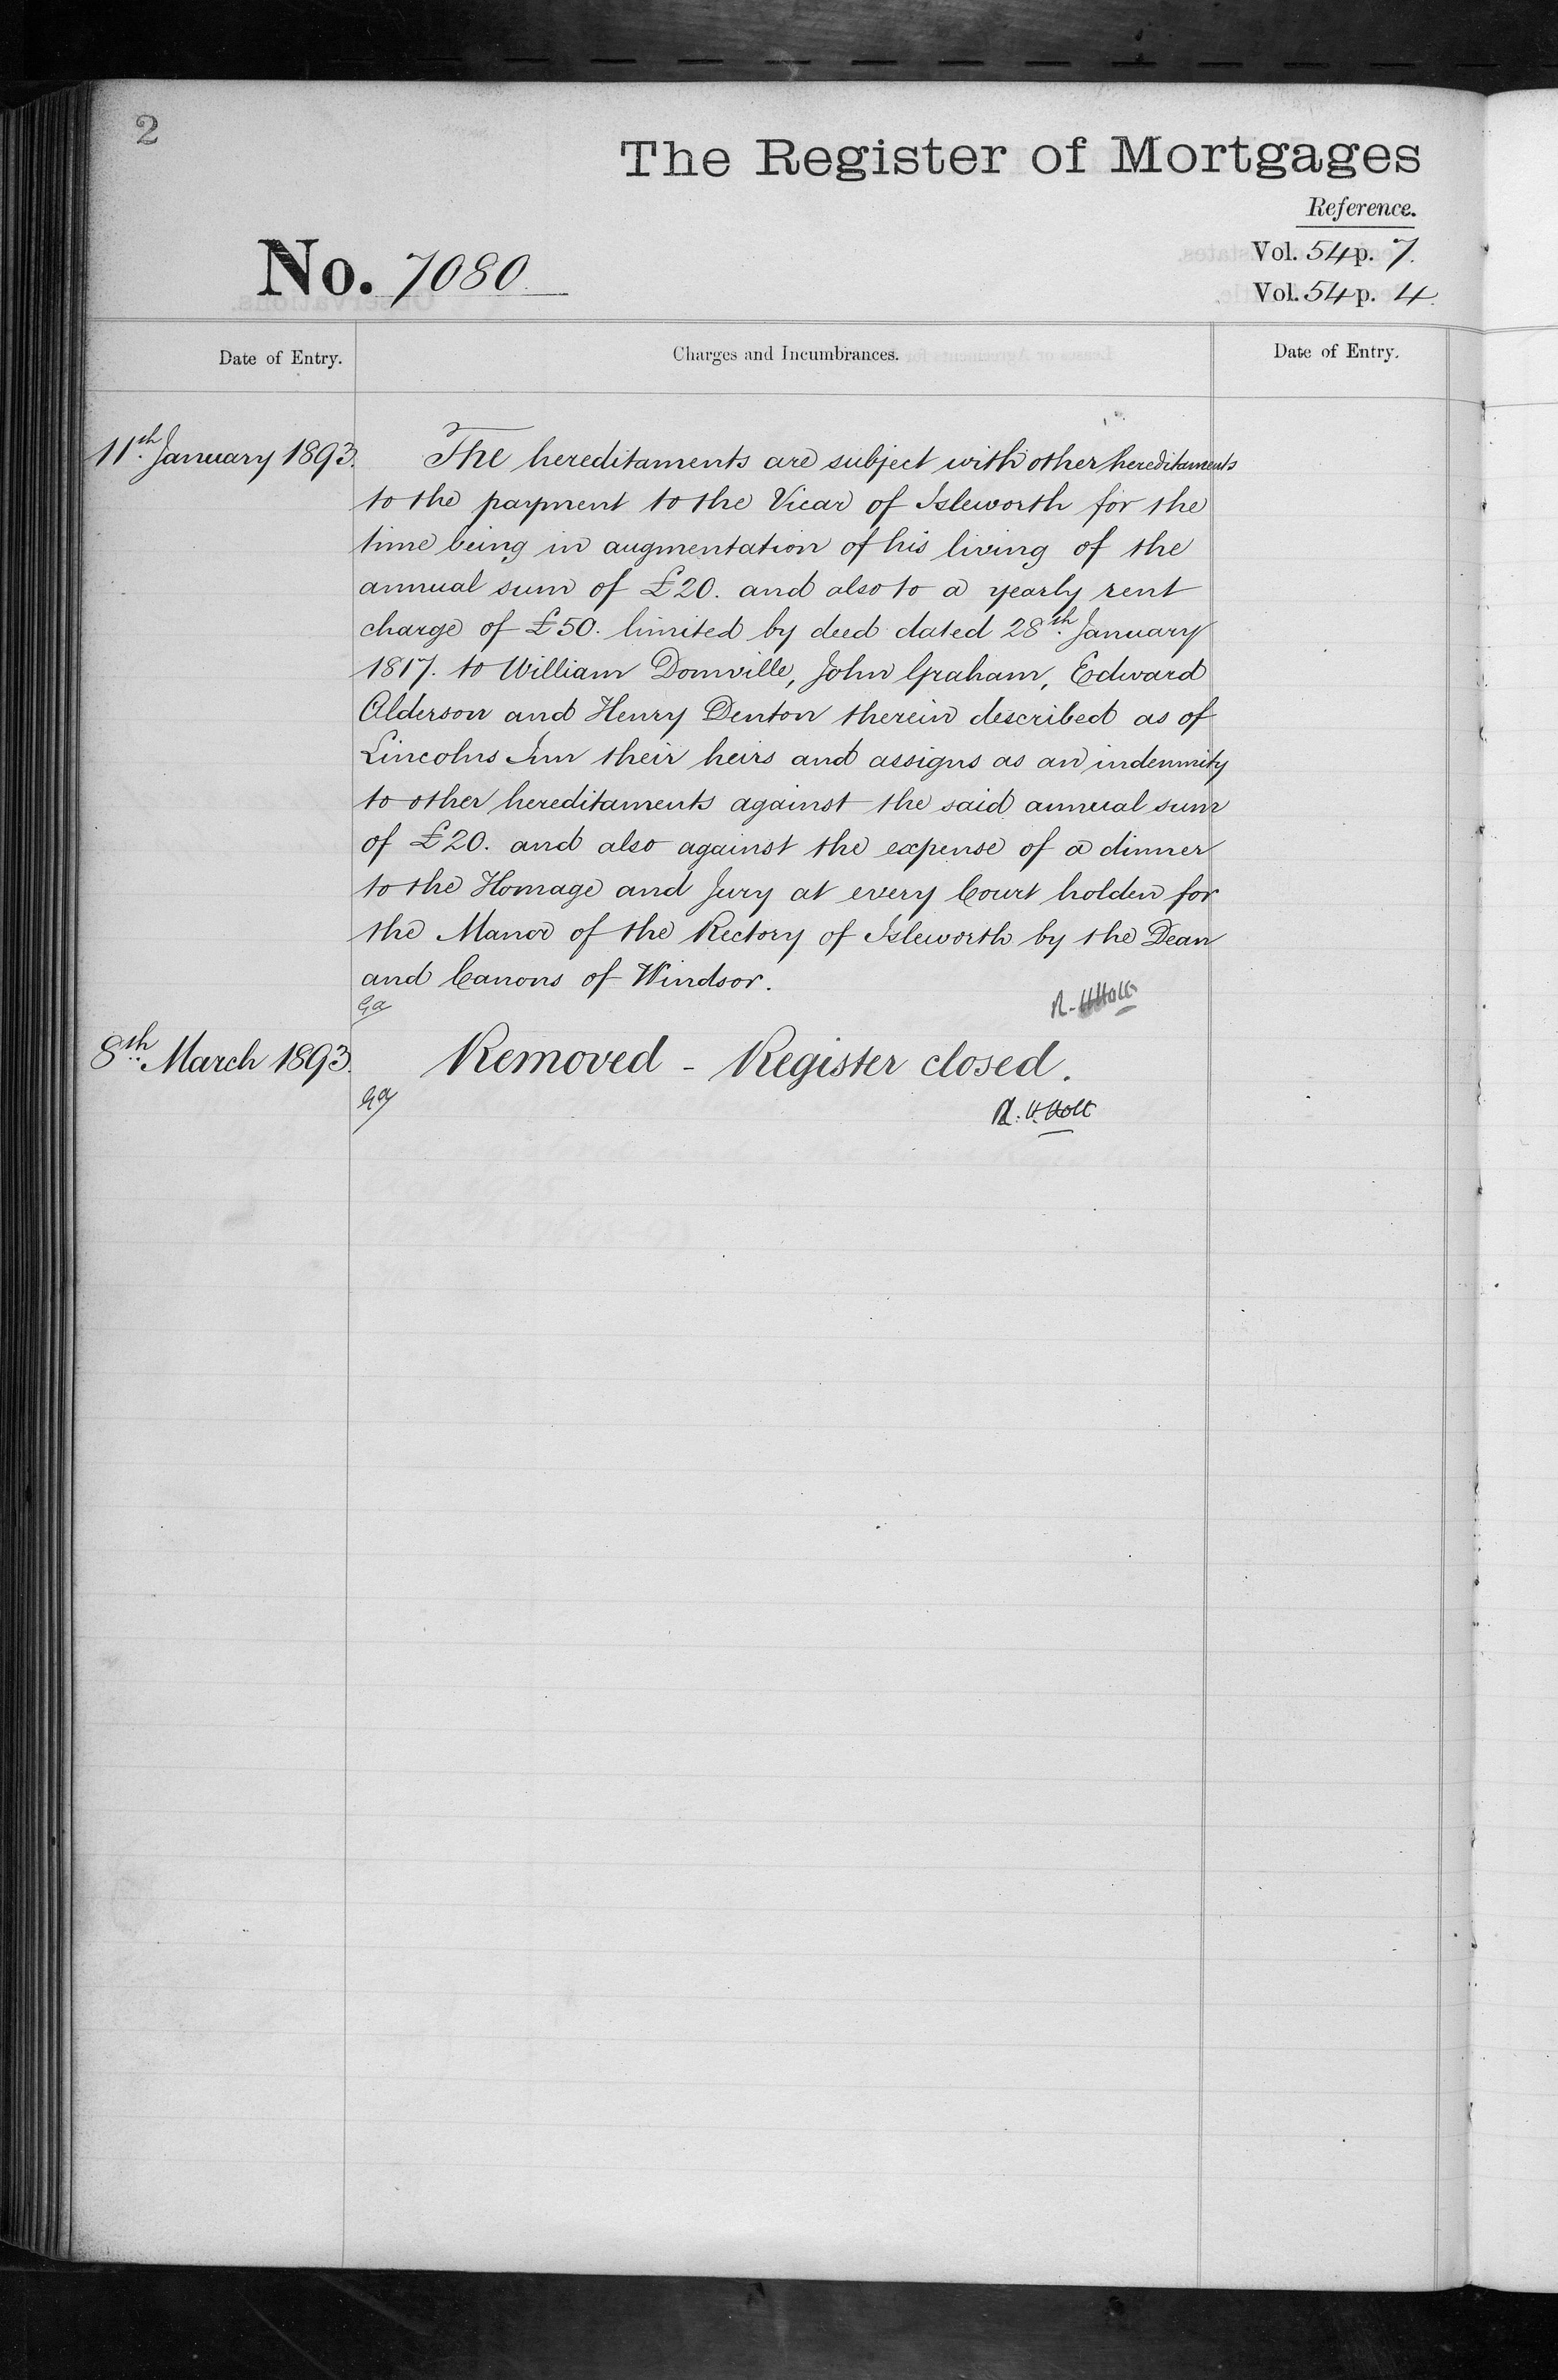 2
The Register of Mortgages
Reference.
No. 7080
Vol. 54 p. 7.
Vol. 54 p. 4.
Date of Entry.
Charges and Incumbrances.
Date of Entry.
11th January 1893.
The hereditaments are subject with other hereditaments
to the payment to the Vicar of Isleworth for the
time being in augmentation of his living of the
annual sum of £20. and also to a yearly rent
charge of £50. limited by deed dated 28th January
1817. to William Domville, John Graham, Edward
Alderson and Henry Denton therein described as of
Lincolns Inn their heirs and assigns as an indemnity
to other hereditaments against the said annual sum
of £20. and also against the expense of a dinner
to the Homage and Jury at every Court holden for
the Manor of the Rectory of Isleworth by the Dean
and Canons of Windsor.
R. H Holt
8th March 1893.
Removed - Register closed.
R. H. Holt